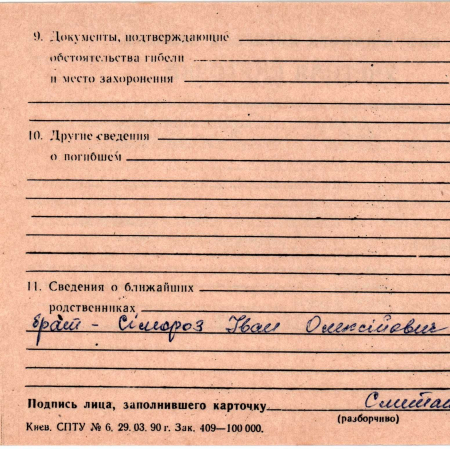 9. Документы, подтверждающие
обстоятельства гибели
и место захоронения
10. Другие сведения
о погибшем
11. Сведения о ближайших
родственниках
брат - Сімороз Іван Олексійович
Подпись лица, заполнившего карточку
(разборчиво)
Киев. СПТУ № 6. 29. 03. 90 г. Зак. 409—100 000.